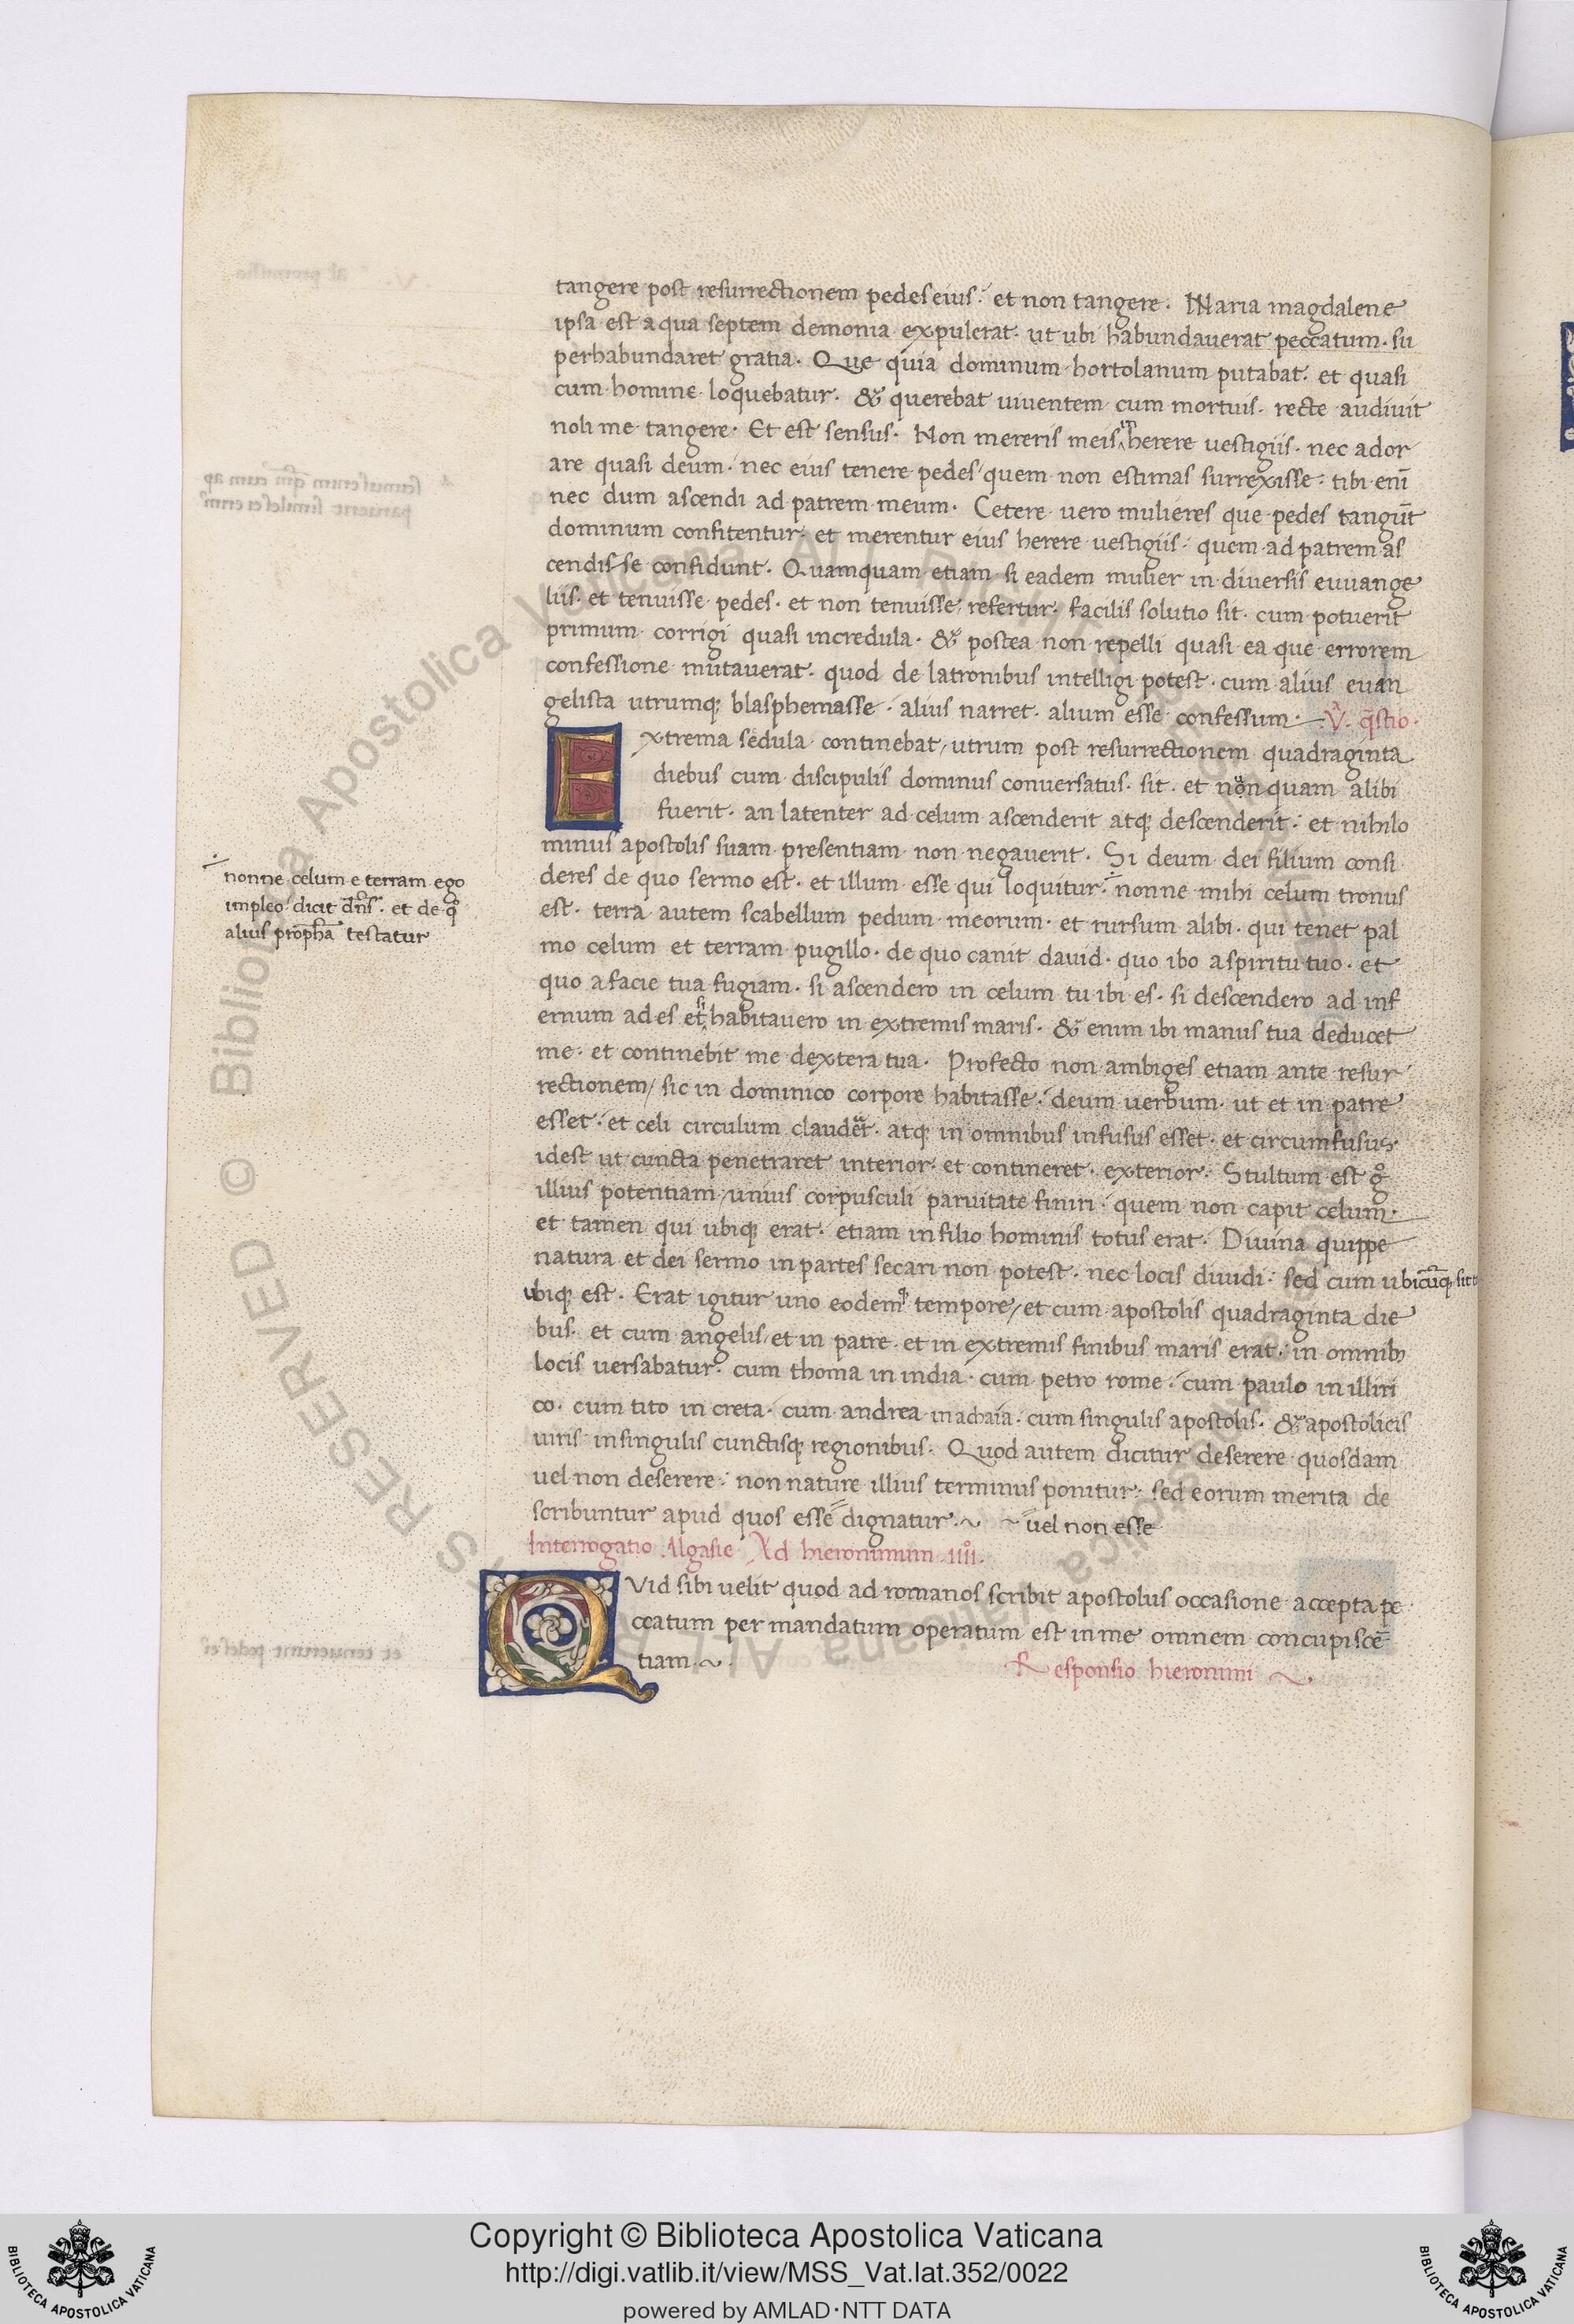 tangere post resurrectionem pedes eius· et non tangere. Maria magdalene
ipsa est a qua septem demonia expulerat· ut ubi habundauerat peccatum· su
perhabundaret gratia. Que quia dominum hortolanum putabat· et quasi
cum homine loquebatur. & querebat uiuentem cum mortuis· recte audiuit
noli me tangere. Et est sensus. Non mereris meis herere uestigiis· nec ador
are quasi deum· nec eius tenere pedes quem non estimas surrexisse: tibi eni̅
nec dum ascendi ad patrem meum. Cetere uero mulieres que pedes tangu̅t
dominum confitentur· et merentur eius herere uestigiis· quem ad patrem as
cendisse confidunt. Quamquam etiam si eadem mulier in diuersis euuange
liis· et tenuisse pedes· et non tenuisse refertur· facilis solutio sit· cum potuerit
primum corrigi quasi incredula· & postea non repelli quasi ea que errorem
confessione mutauerat· quod de latronibus intelligi potest· cum alius euan
gelista utrumq; blasphemasse· alius narret· alium esse confessum. V. q̅stio.
Extrema sedula continebat/ utrum post resurrectionem quadraginta
diebus cum discipulis dominus conuersatus sit· et nonquam alibi
fuerit· an latenter ad celum ascenderit atq; descenderit· et nihilo
minus apostolis suam presentiam non negauerit. Si deum dei filium consi
deres de quo sermo est· et illum esse qui loquitur· nonne mihi celum tronus
est· terra autem scabellum pedum meorum· et rursum alibi· qui tenet pal
mo celum et terram pugillo· de quo canit dauid· quo ibo a spiritu tuo· et
quo a facie tua fugiam· si ascendero in celum tu ibi es· si descendero ad inf
ernum ad es et si habitauero in extremis maris· & enim ibi manus tua deducet
me· et continebit me dextera tua. Profecto non ambiges etiam ante resur
rectionem/ sic in dominico corpore habitasse· deum uerbum· ut et in patre
esset· et celi circulum clauderet· atq; in omnibus infusus esset· et circumfusus·
idest ut cuncta penetraret interior· et contineret exterior. Stultum est g°
illius potentiam unius corpusculi paruitate finiri· quem non capit celum·
et tamen qui ubiq; erat· etiam in filio hominis totus erat. Diuina quippe
natura et dei sermo in partes secari non potest· nec locis diuidi: sed cum ubicu̅q; sit
ubiq; est. Erat igitur uno eodemq; tempore/ et cum apostolis quadraginta die
bus· et cum angelis/ et in patre· et in extremis finibus maris erat· in omnib;
locis uersabatur· cum thoma in india· cum petro rome· cum paulo in illiri
co· cum tito in creta· cum andrea in achaia· cum singulis apostolis· & apostolicis
uiris in singulis cunctisq; regionibus. Quod autem dicitur deserere quosdam
uel non deserere· non nature illius terminus ponitur: sed eorum merita de
scribuntur apud quos esse dignatur. uel non esse
Interrogatio Algasie Ad hieronimum .IIII.
QVid sibi uelit quod ad romanos scribit apostolus occasione accepta pe
ccatum per mandatum operatum est in me omnem concupisce̅
tiam.
Responsio hieronimi
nonne celum e terram ego
impleo· dicit dn̅s· et de q°
alius proph̅a testatur
Copyright © Biblioteca Apostolica Vaticana
http://digi.vatlib.it/view/MSS_Vat.lat.352/0022
powered by AMLAD·NTT DATA
BIBLIOTECA APOSTOLICA VATICANA
BIBLIOTECA APOSTOLICA VATICANA